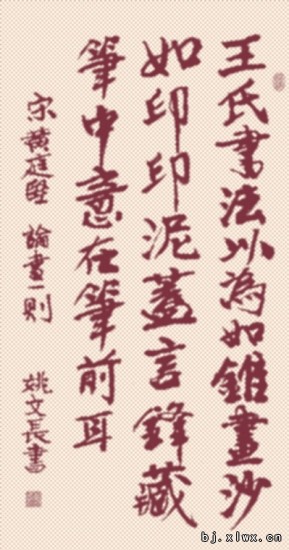 王氏書法以為如錐畫沙
如印印泥蓋言鋒藏
筆中意在筆前耳
宋黃庭堅 論書一則
姚文長書
bj.xlwx.cn